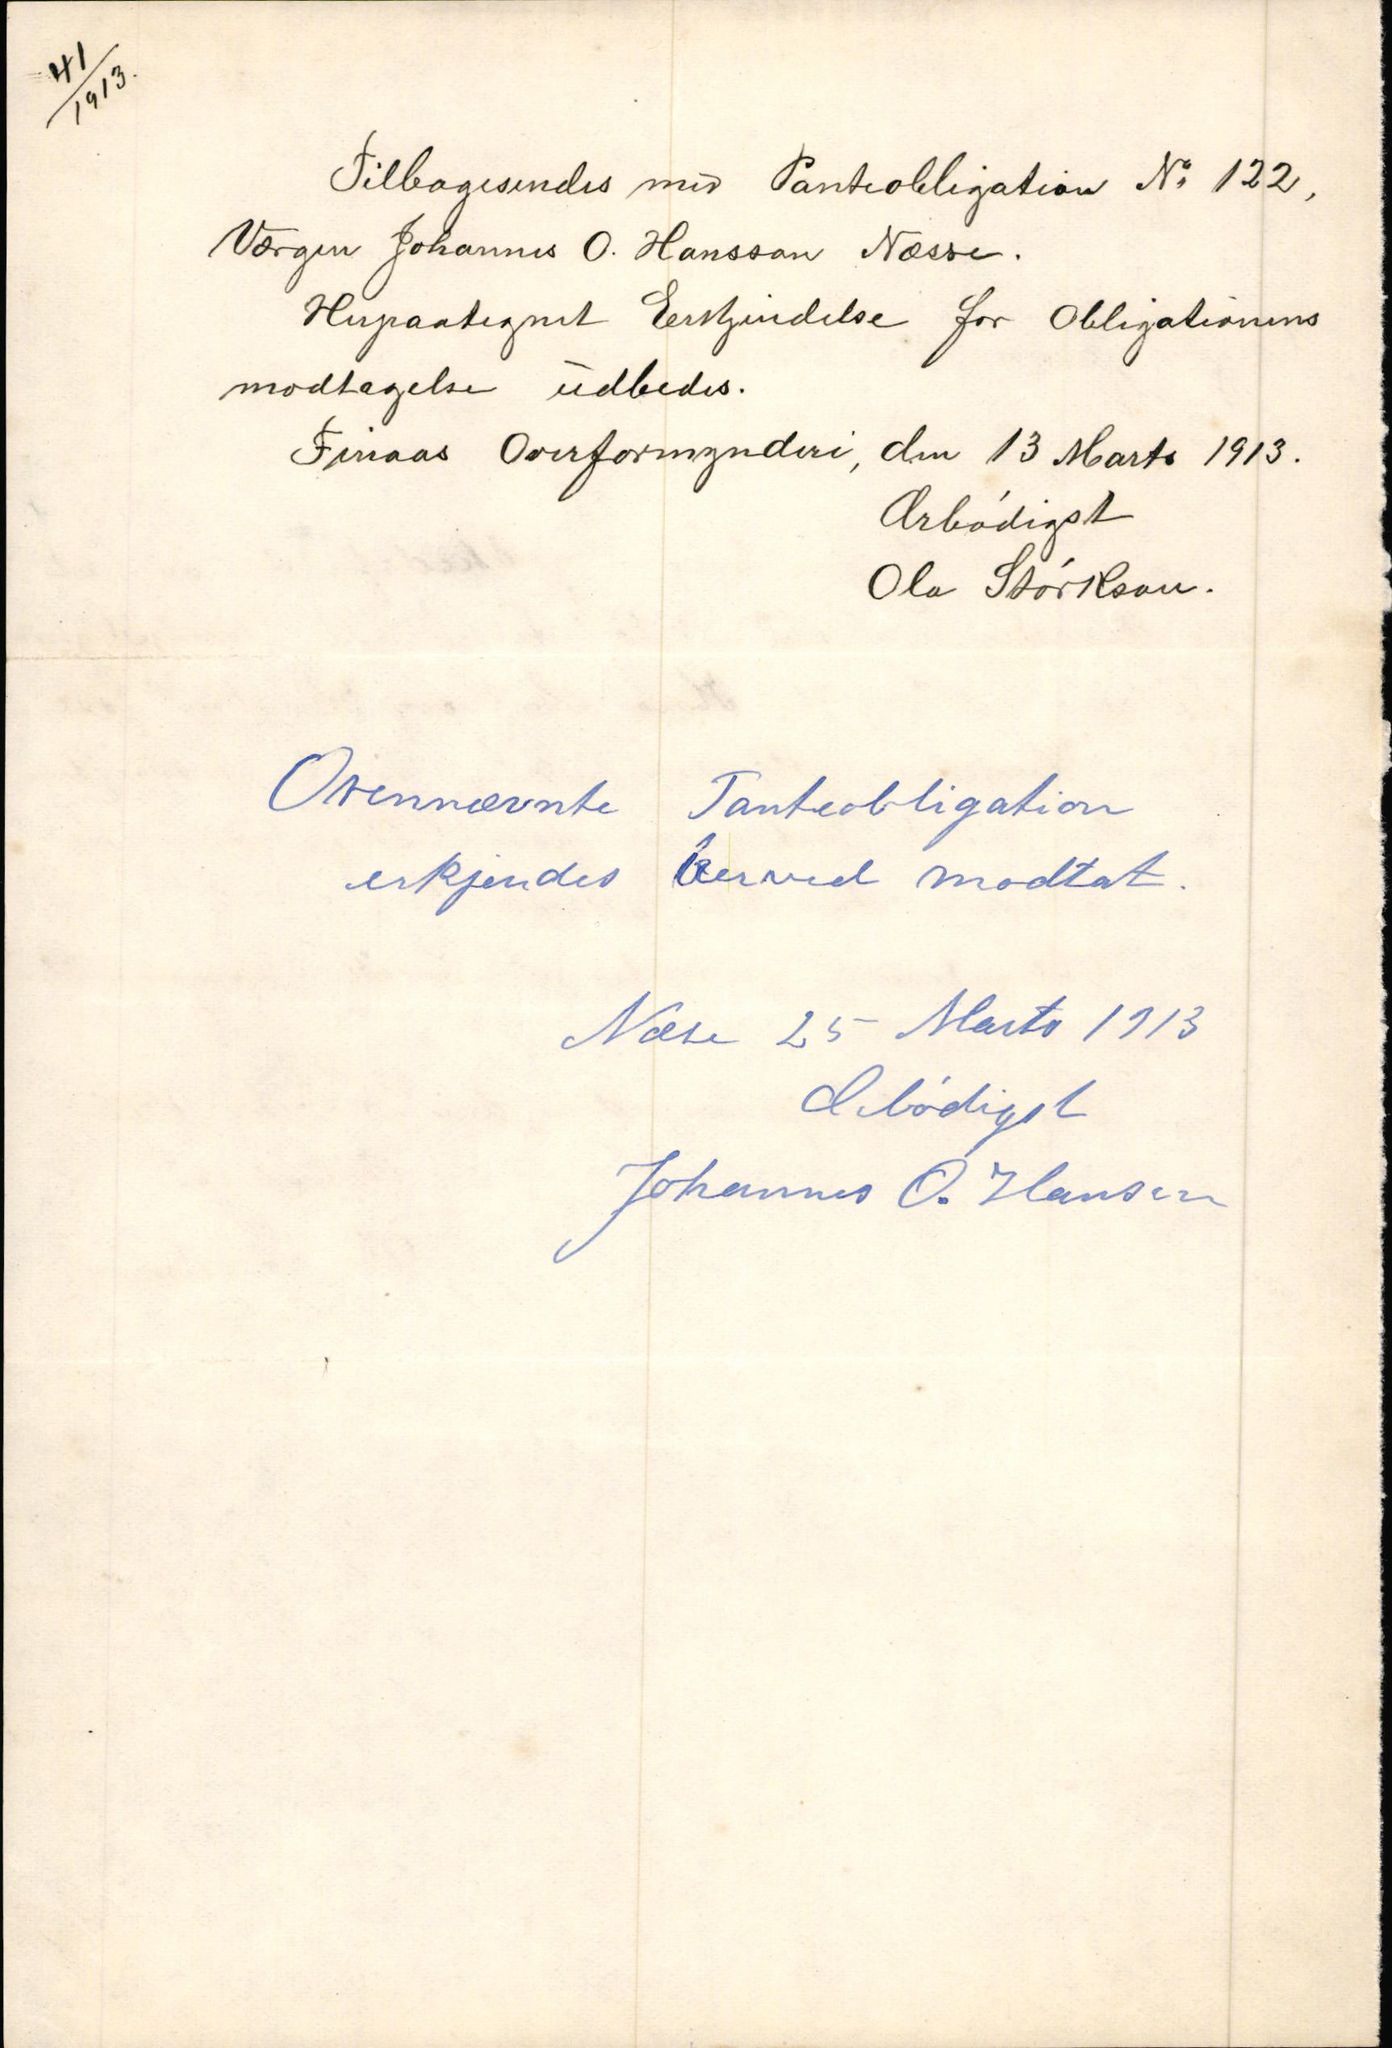 41/1913.
Tilbagesendes med Panteobligation No 122,
Værgen Johannes O. Hansson Næsse.
Herpaategnet Erkjendelse for Obligationens
modtagelse udbedes.
Finaas Overformynderi, den 13 Marts 1913.
Ærbödigst
Ola Störkson.
Ovennævnte Panteobligation
erkjendes herved modtat.
Næse 25 Marts 1913
Ærbödigst
Johannes O. Hansen